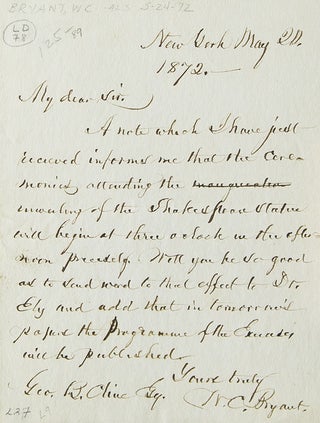 BRYANT, W.C. ALS 5-24-72
LD
78
125-
New York May 20.
1872.-
My dear Sir.
A note which I have just
received informs me that the cere-
monies attending the
unveiling of the Shakespeare statue
will begin at three o'clock in the after-
noon precisely. Will you be so good
as to send word to that effect to Dr.
Ely and add that in tomorrow's
papers the Programme of the Exercises
will be published.
Yours truly
Geo. B. Cline Esq. W. C. Bryant.